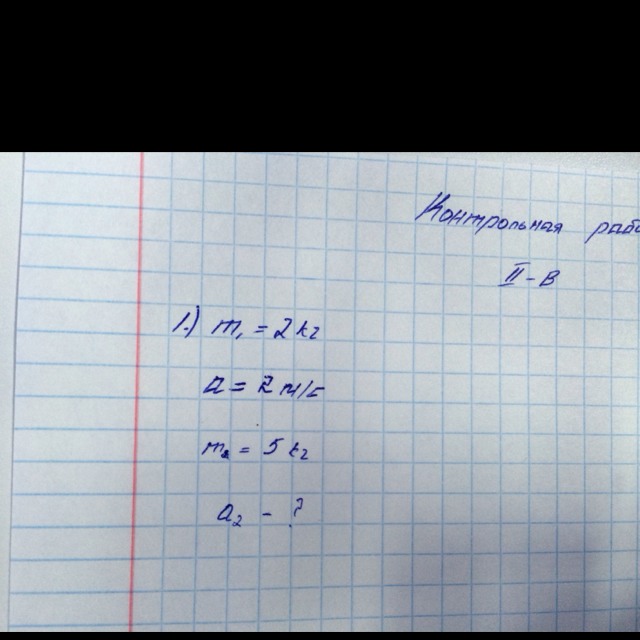 Контрольная
II-В
1.) m₁ = 2 кг
a = 2 м/с
m₂ = 5 кг
a₂ - ?